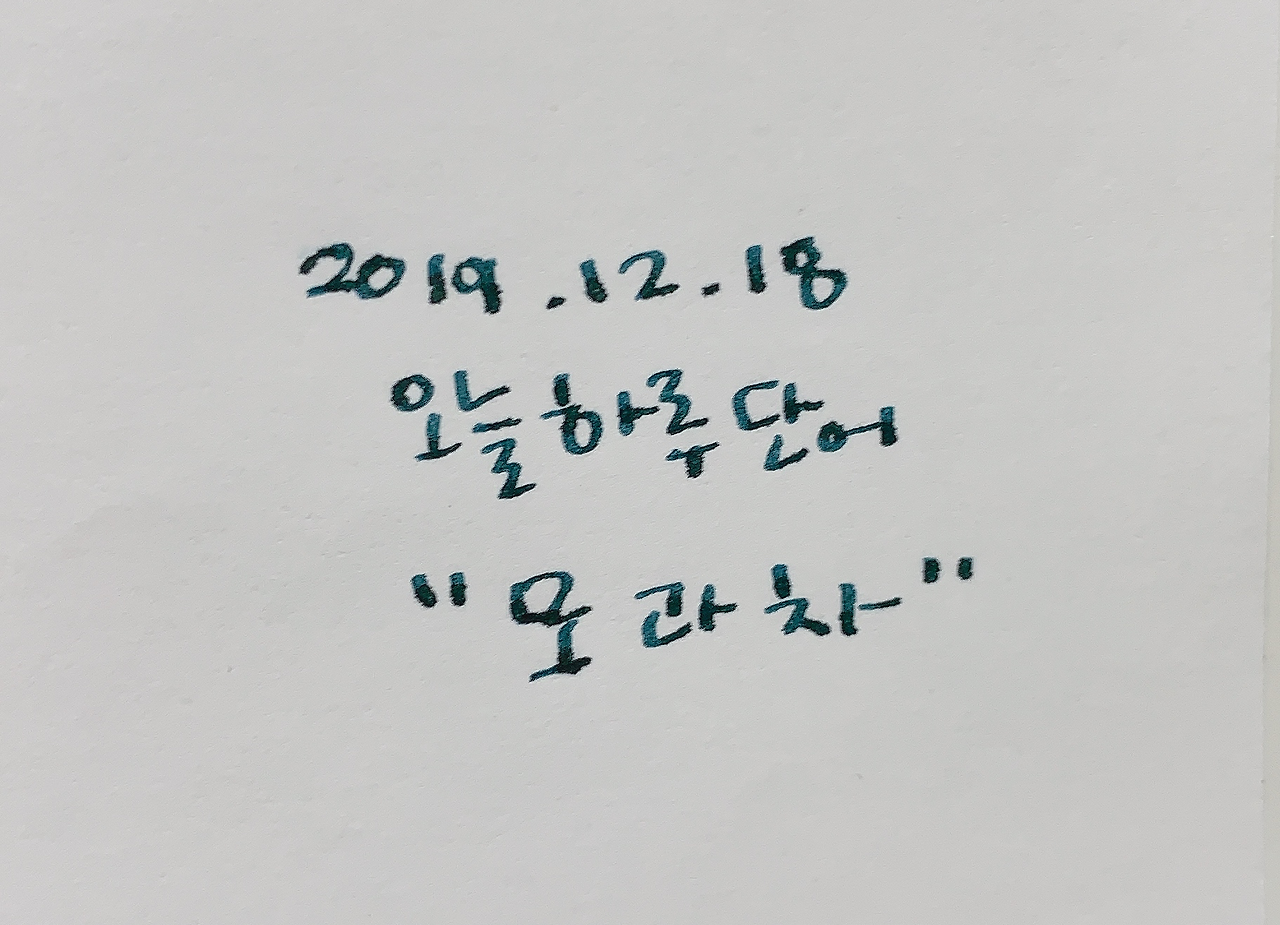 2019.12.18
오늘하루단어
"모과차"